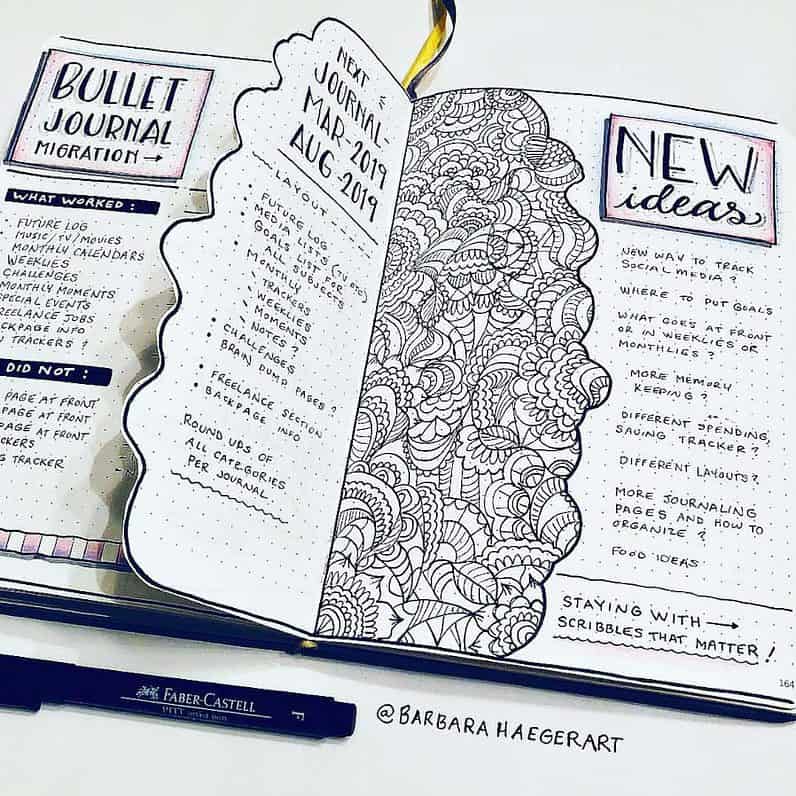 BULLET
JOURNAL
MIGRATION →
WHAT WORKED:
FUTURE LOG
MUSIC/TV/MOVIES
MONTHLY CALENDARS
WEEKLIES
CHALLENGES
MONTHLY MOMENTS
SPECIAL EVENTS
FREELANCE JOBS
BACKPAGE INFO
TRACKERS?
DID NOT:
PAGE AT FRONT
PAGE AT FRONT
PAGE AT FRONT
TRACKER
NEXT
JOURNAL-
MAR-2019
AUG-2019
LAYOUT
• FUTURE LOG
• MEDIA LISTS (TV ETC)
• GOALS LIST FOR
ALL SUBJECTS
• MONTHLY
TRACKERS
WEEKLIES
MOMENTS
NOTES?
• CHALLENGES
• BRAIN DUMP PAGES?
• FREELANCE SECTION
• BACKPAGE INFO
ROUND UPS OF
ALL CATEGORIES
PER JOURNAL
NEW
ideas
NEW WAY TO TRACK
SOCIAL MEDIA?
WHERE TO PUT GOALS
WHAT GOES AT FRONT
OR IN WEEKLIES OR
MONTHLIES?
MORE MEMORY
KEEPING?
DIFFERENT SPENDING,
SAVING TRACKER?
DIFFERENT LAYOUTS?
MORE JOURNALING
PAGES AND HOW TO
ORGANIZE?
FOOD IDEAS
STAYING WITH →
SCRIBBLES THAT MATTER!
164
FABER-CASTELL
PITT artist pen
F
@BARBARAHAEGERART